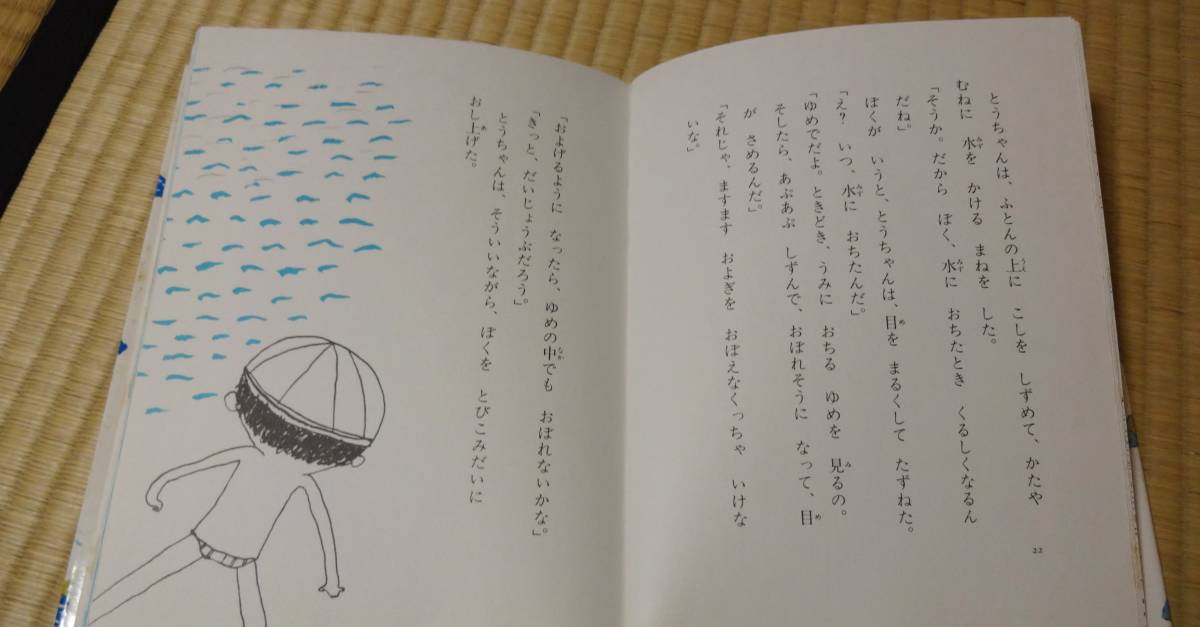 とうちゃんは、ふとんの上に こしを しずめて、かたや
むねに 水を かける まねを した。
「そうか。だから ぼく、水に おちたとき くるしくなるん
だね。」
ぼくが いうと、とうちゃんは、目を まるくして たずねた。
「え? いつ、水に おちたんだ。」
「ゆめでだよ。ときどき、うみに おちる ゆめを 見るの。
そしたら、あぷあぷ しずんで、おぼれそうに なって、目
が さめるんだ。」
「それじゃ、ますます およぎを おぼえなくっちゃ いけな
いな。」
22
「およげるように なったら、ゆめの中でも おぼれないかな。」
「きっと、だいじょうぶだろう。」
とうちゃんは、そういいながら、ぼくを とびこみだいに
おし上げた。